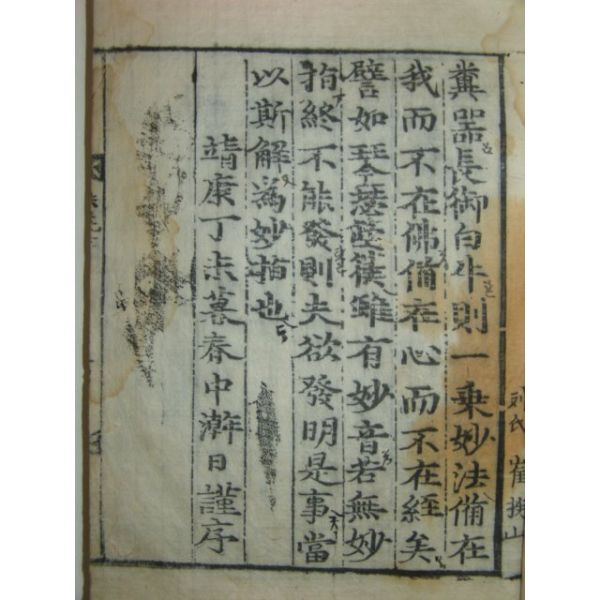 糞器長御白牛則一乗妙法俻在
我而不在佛俻在心而不在経矣
譬如琴瑟箜篌雖有妙音若無妙
指終不能發則夫欲發明是事當
以斯解為妙指也
靖康丁未暮春中澣日謹序